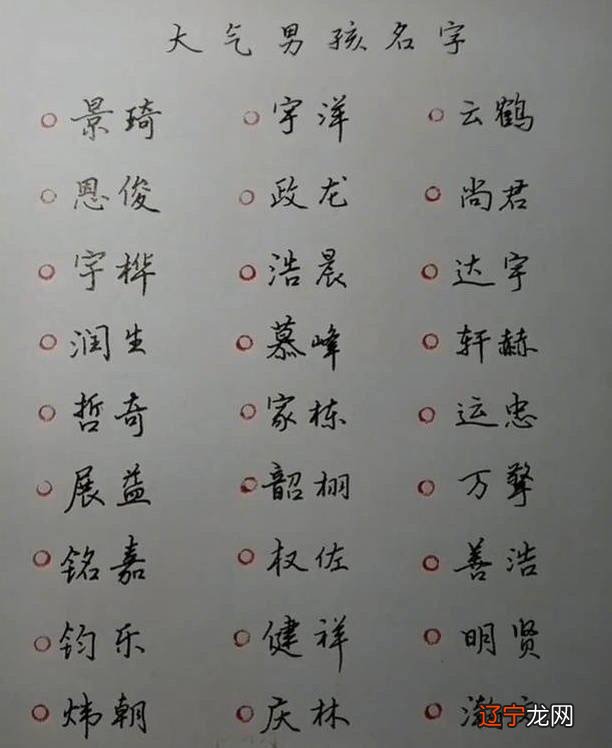 大气男孩名字
景琦 宇洋 云鹤
恩俊 政龙 尚君
宇桦 浩晨 达宇
润生 慕峰 轩赫
哲奇 家栋 运忠
展益 韶栩 万擎
铭嘉 权佐 善浩
钧乐 健祥 明贤
炜朝 庆林
辽宁龙网